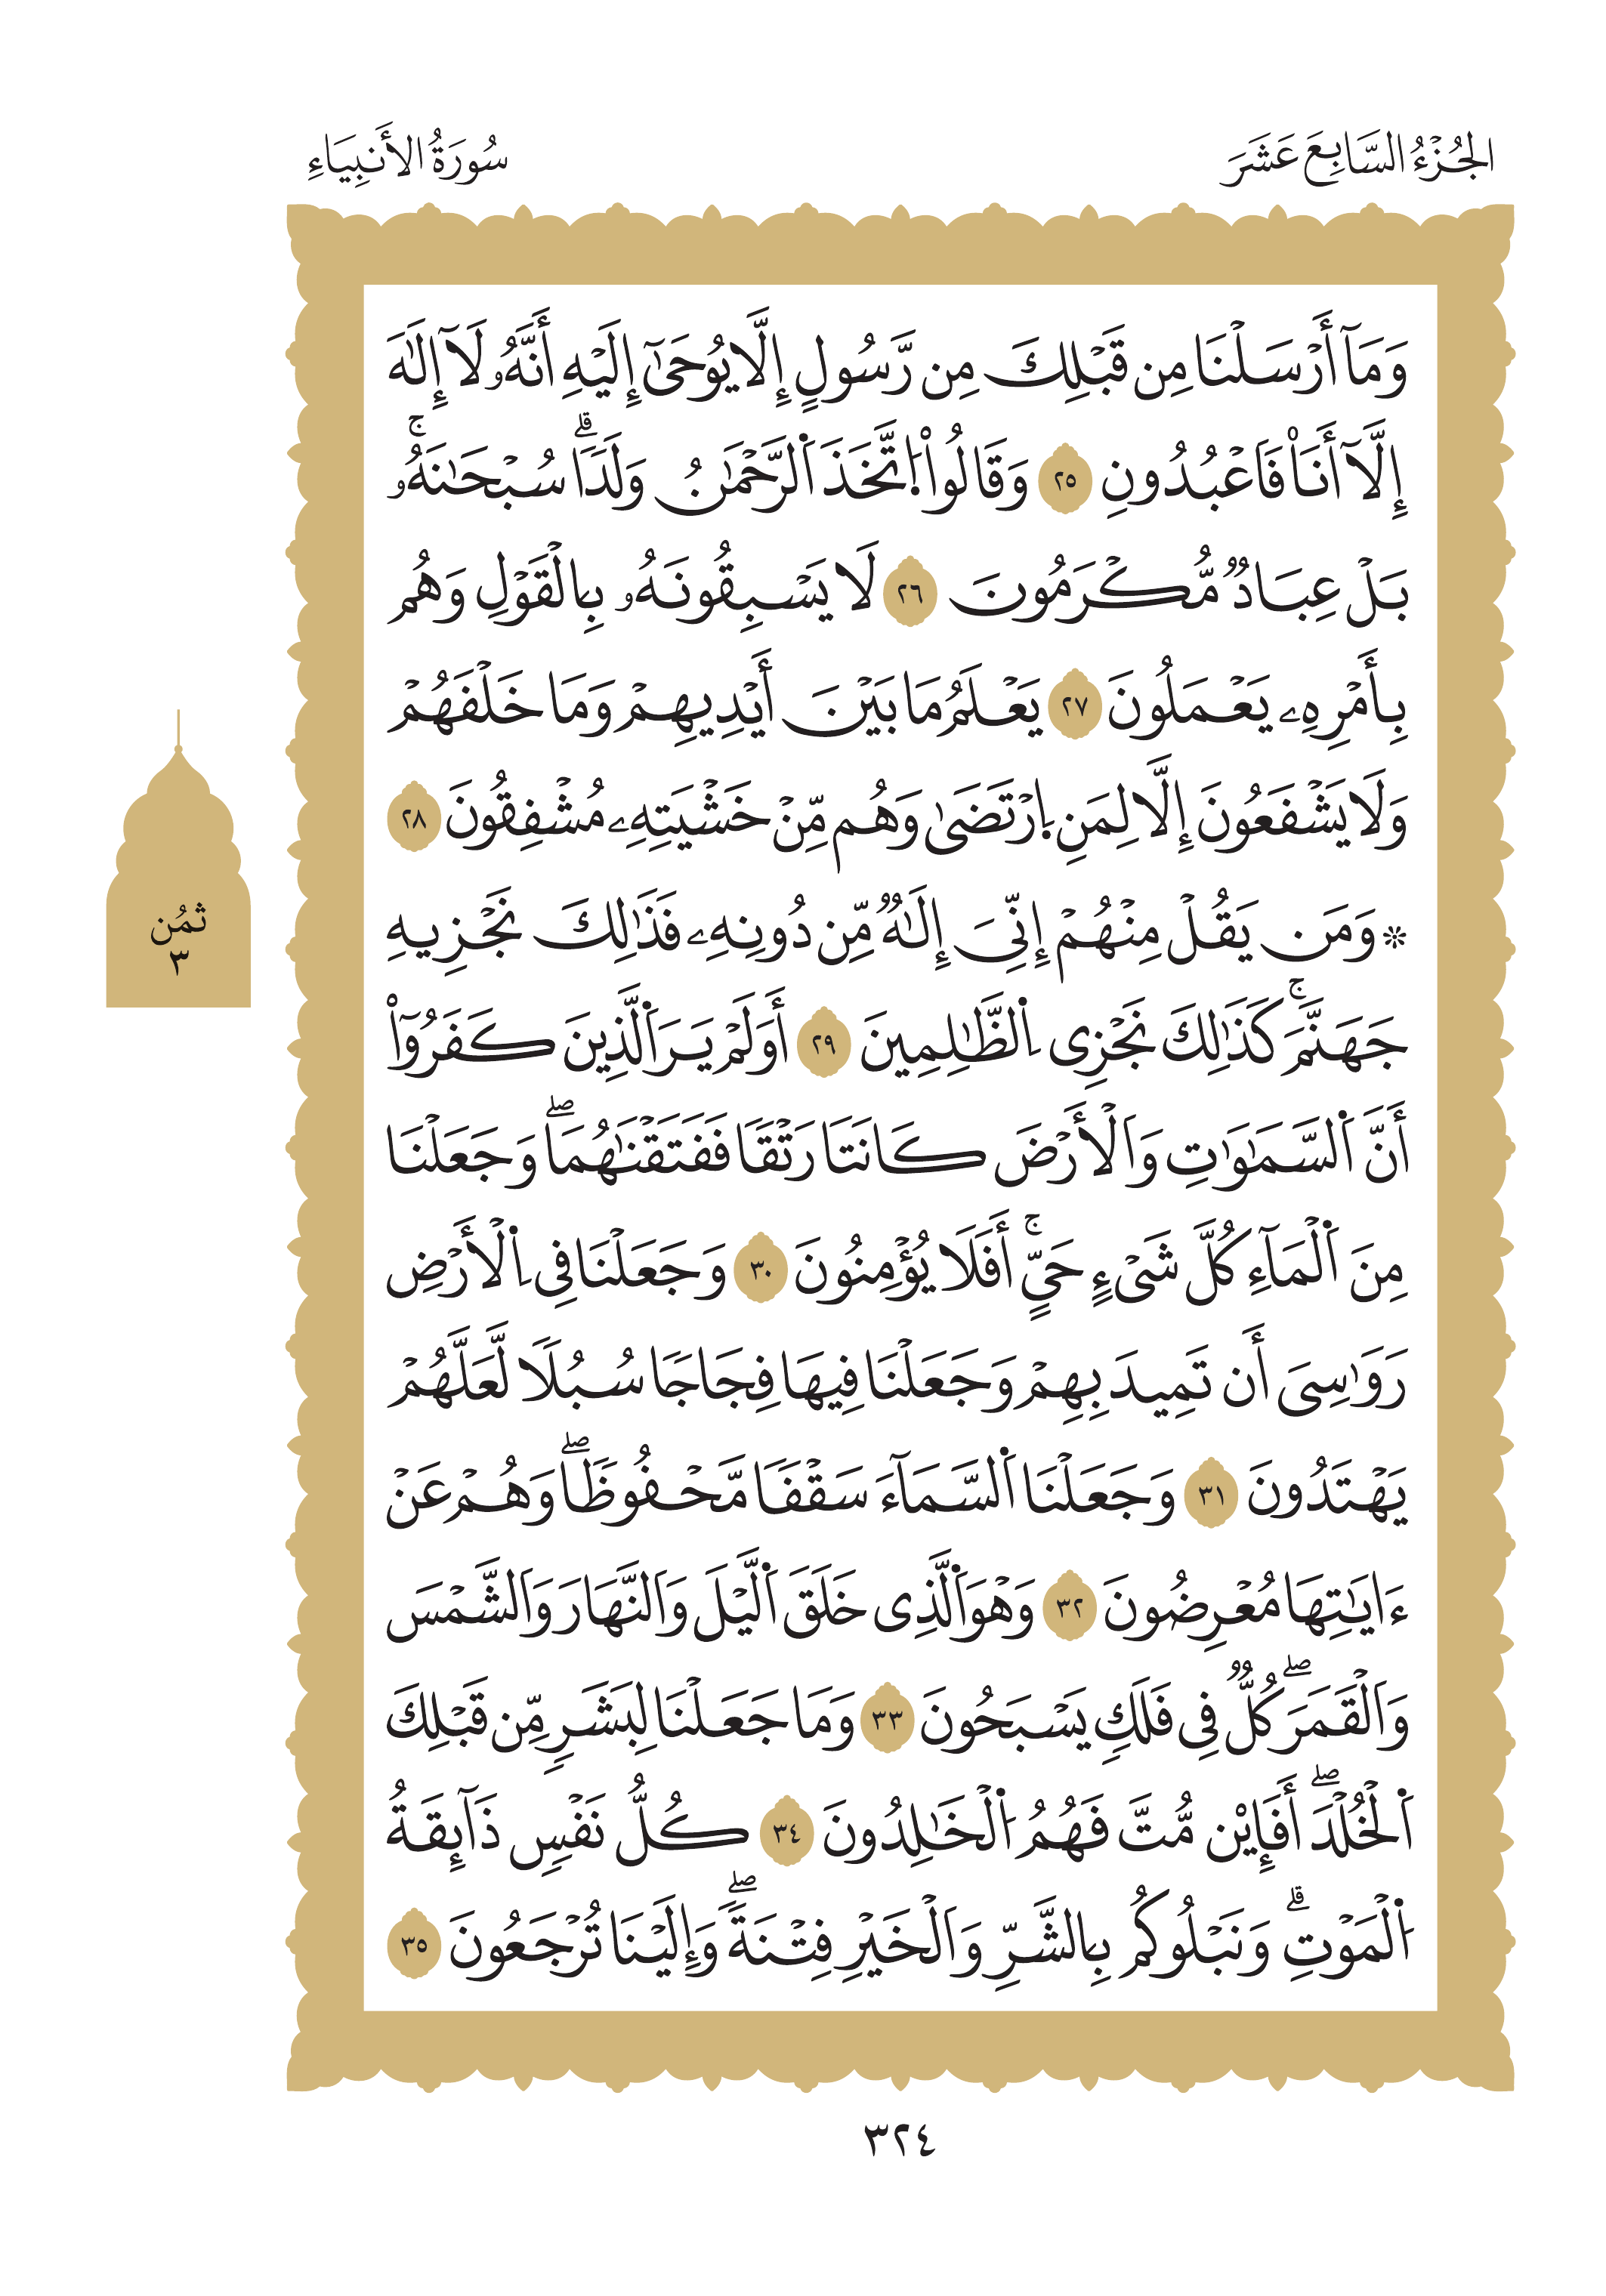 الجُزْءُ السَّابِعَ عَشَرَ
سُورَةُ الأَنبِيَاءِ
وَمَآ أَرْسَلْنَا مِن قَبْلِكَ مِن رَّسُولٍ إِلَّا يُوحَىٰٓ إِلَيْهِ أَنَّهُۥ لَآ إِلَٰهَ
إِلَّآ أَنَا۠ فَاَعْبُدُونِ ٢٥ وَقَالُواْ اُ۪تَّخَذَ اَ۬لرَّحْمَٰنُ وَلَدٗاۗ سُبْحَٰنَهُۥۚ
بَلْ عِبَادٞ مُّكْرَمُونَ ٢٦ لَا يَسْبِقُونَهُۥ بِالْقَوْلِ وَهُم
بِأَمْرِهِۦ يَعْمَلُونَ ٢٧ يَعْلَمُ مَا بَيْنَ أَيْدِيهِمْ وَمَا خَلْفَهُمْ
وَلَا يَشْفَعُونَ إِلَّا لِمَنِ اِ۪رْتَضَىٰ وَهُم مِّنْ خَشْيَتِهِۦ مُشْفِقُونَ ٢٨
۞ وَمَن يَقُلْ مِنْهُمْ إِنِّىَ إِلَٰهٞ مِّن دُونِهِۦ فَذَٰلِكَ نَجْزِيهِ
جَهَنَّمَۚ كَذَٰلِكَ نَجْزِى اِ۬لظَّٰلِمِينَ ٢٩ أَوَلَمْ يَرَ اَ۬لَّذِينَ كَفَرُوٓاْ
أَنَّ اَ۬لسَّمَٰوَٰتِ وَاَلْأَرْضَ كَانَتَا رَتْقٗا فَفَتَقْنَٰهُمَاۖ وَجَعَلْنَا
مِنَ اَ۬لْمَآءِ كُلَّ شَىْءٍ حَيٍّۚ أَفَلَا يُؤْمِنُونَ ٣٠ وَجَعَلْنَا فِى اِ۬لْأَرْضِ
رَوَٰسِىَ أَن تَمِيدَ بِهِمْ وَجَعَلْنَا فِيهَا فِجَاجٗا سُبُلٗا لَّعَلَّهُمْ
يَهْتَدُونَ ٣١ وَجَعَلْنَا اَ۬لسَّمَآءَ سَقْفٗا مَّحْفُوظٗاۖ وَهُمْ عَنْ
ءَايَٰتِهَا مُعْرِضُونَ ٣٢ وَهْوَ اَ۬لَّذِى خَلَقَ اَ۬لَّيْلَ وَاَلنَّهَارَ وَاَلشَّمْسَ
وَاَلْقَمَرَۖ كُلّٞ فِى فَلَكٖ يَسْبَحُونَ ٣٣ وَمَا جَعَلْنَا لِبَشَرٖ مِّن قَبْلِكَ
اَ۬لْخُلْدَۖ أَفَإِيْن مُّتَّ فَهُمُ اُ۬لْخَٰلِدُونَ ٣٤ كُلُّ نَفْسٖ ذَآئِقَةُ
اُ۬لْمَوْتِۗ وَنَبْلُوكُم بِالشَّرِّ وَاَلْخَيْرِ فِتْنَةٗۖ وَإِلَيْنَا تُرْجَعُونَ ٣٥
ثمُن
٣
٣٢٤